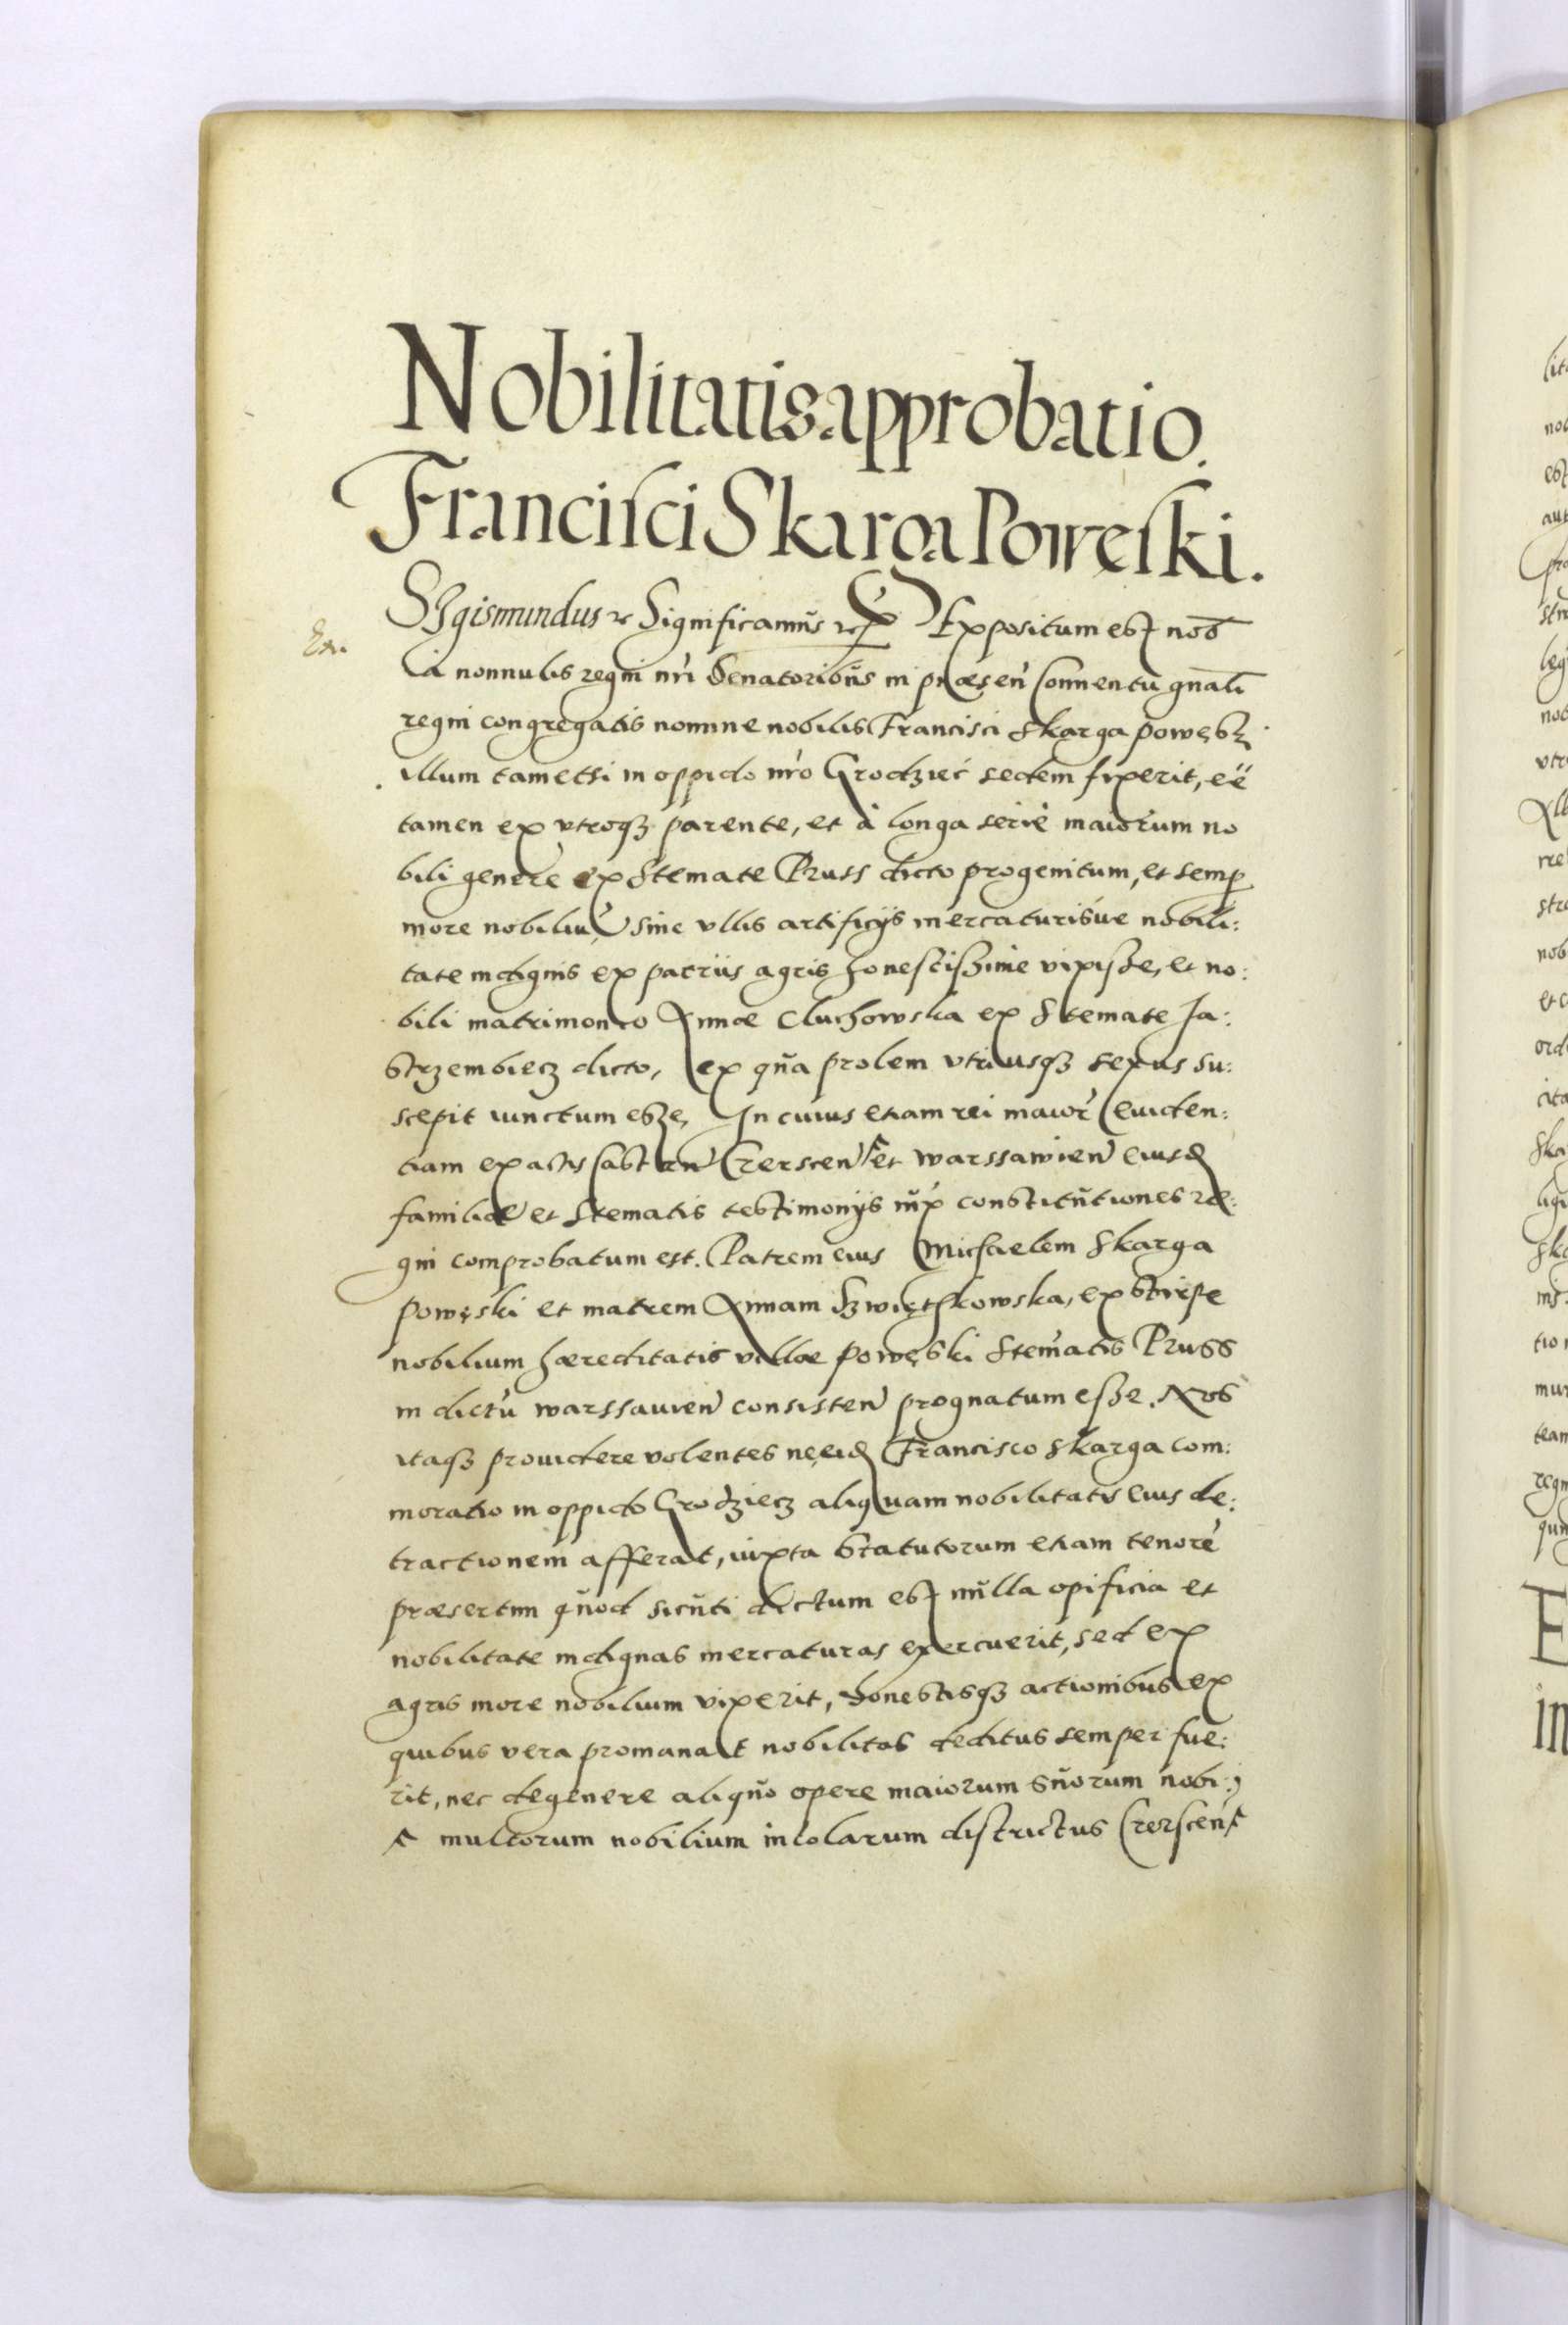 Nobilitatis approbatio.
Francisci Skarga Powęski.
Sygismundus Significamus Expositum est nob
Ex.
a nonnullis regni nr̃i Senatoribus in præsen̄ Conuentu gñali
regni congregatis nomine nobilis Francisci Skarga Powęsk
illum tametsi in oppido nr̃o Grodziec sedem fixerit, eē
tamen ex vtroqȝ parente, et à longa serie maiorum no
bili genere ex Stemate Pruss dicto progenitum, et semp
more nobiliū sine vllis artificijs mercaturisue nobili:
tate indignis ex patriis agris honestissime vixisse, et no:
bili matrimonio Annæ Cluchowska ex Stemate Ja:
strzembiecz dicto, ex qua prolem vtriusqȝ sexus su:
scepit iunctum esse, In cuius etiam rei maior̃ euiden:
tiam ex actis Castren̄ Czerscen̄ et Warssawien̄ eiusd
familiæ et Stematis testimonijs iux constitutiones re:
gni comprobatum est. Patrem eius Michaelem Skarga
Powęski et matrem Annam Szwiętskowska, ex stirpe
nobilium hæreditatis villæ Powęski Stematis Pruss
in dictu Warssauien̄ consisten̄ prognatum esse. Nos
itaqȝ prouidere volentes ne eid Francisco Skarga com:
moratio in oppido Grodziecz aliquam nobilitatis eius de:
tractionem afferat, iuxta Statutorum etiam tenorē
præsertim quod sicuti dictum est nulla opificia et
nobilitate indignas mercaturas exercuerit, sed ex
agris more nobilium vixerit, honestisqȝ actionibus ex
quibus vera promanat nobilitas deditus semper fue:
rit, nec degenere aliquo opere maiorum suorum nobi:
multorum nobilium incolarum districtus Czerscen̄